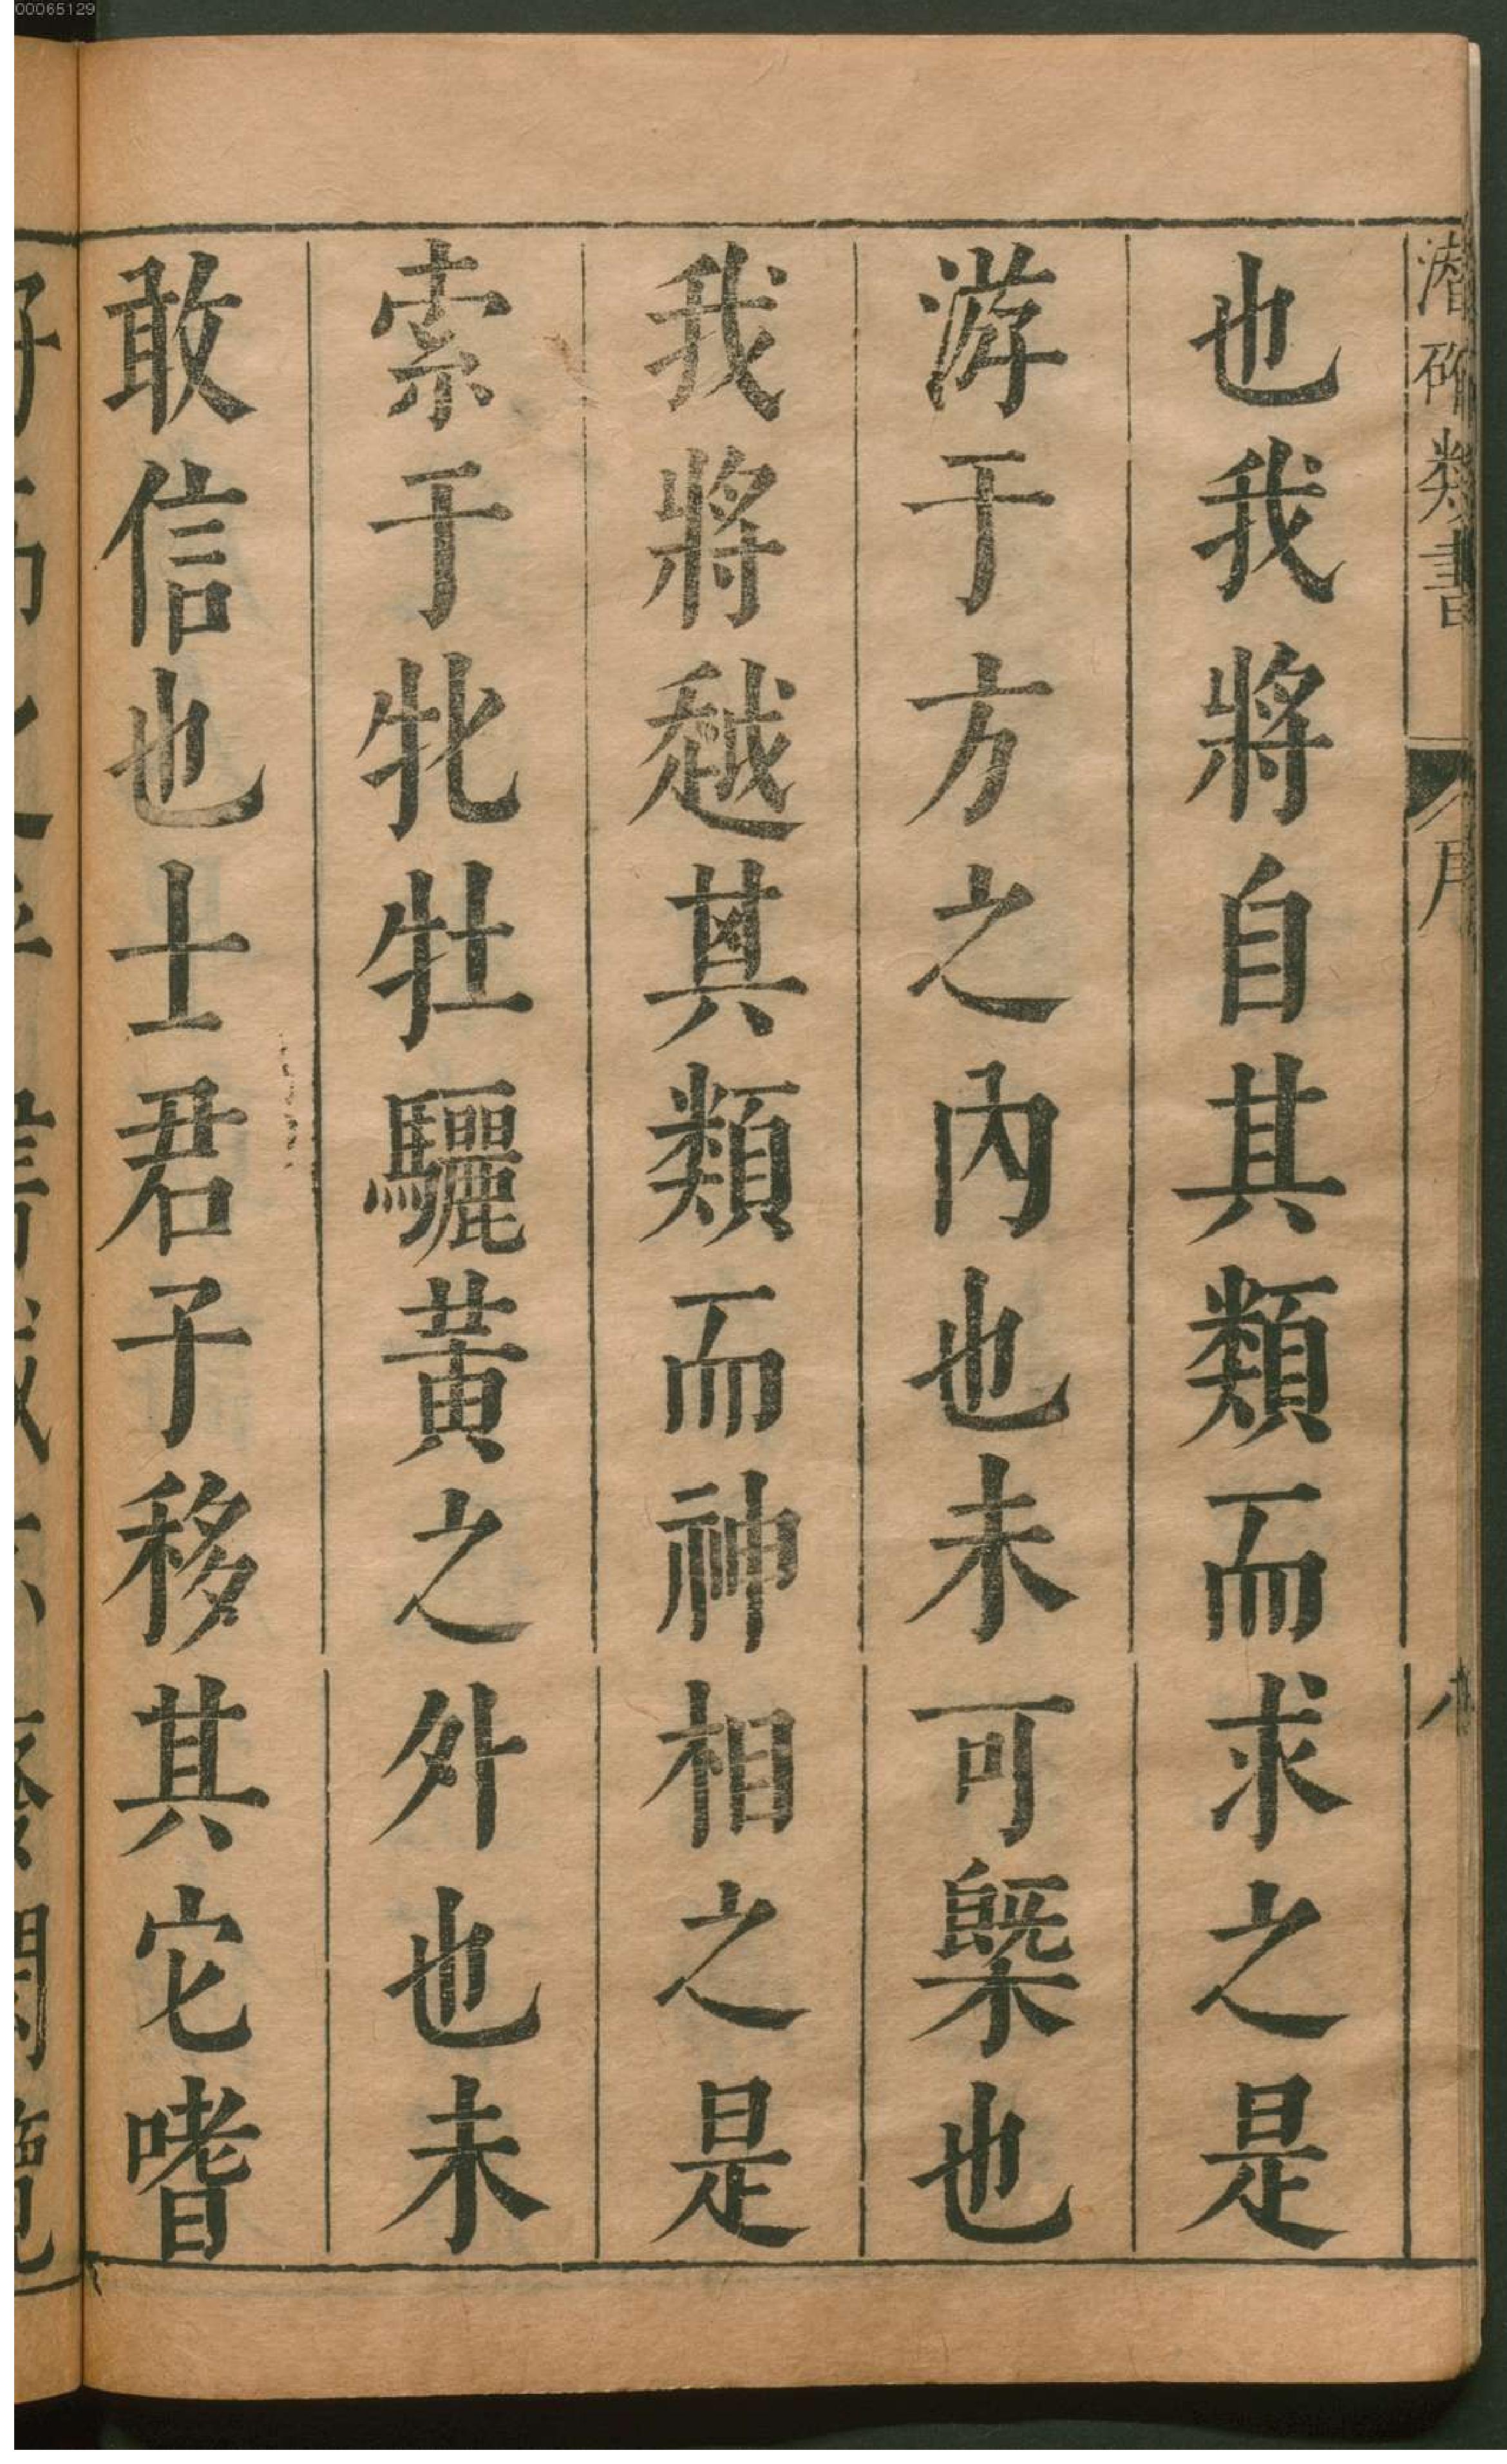 00065129
潛確類書
序
八
也我將自其類而求之是
游于方之內也未可槩也
我將越其類而神相之是
索于牝牡驪黃之外也未
敢信也士君子移其它嗜